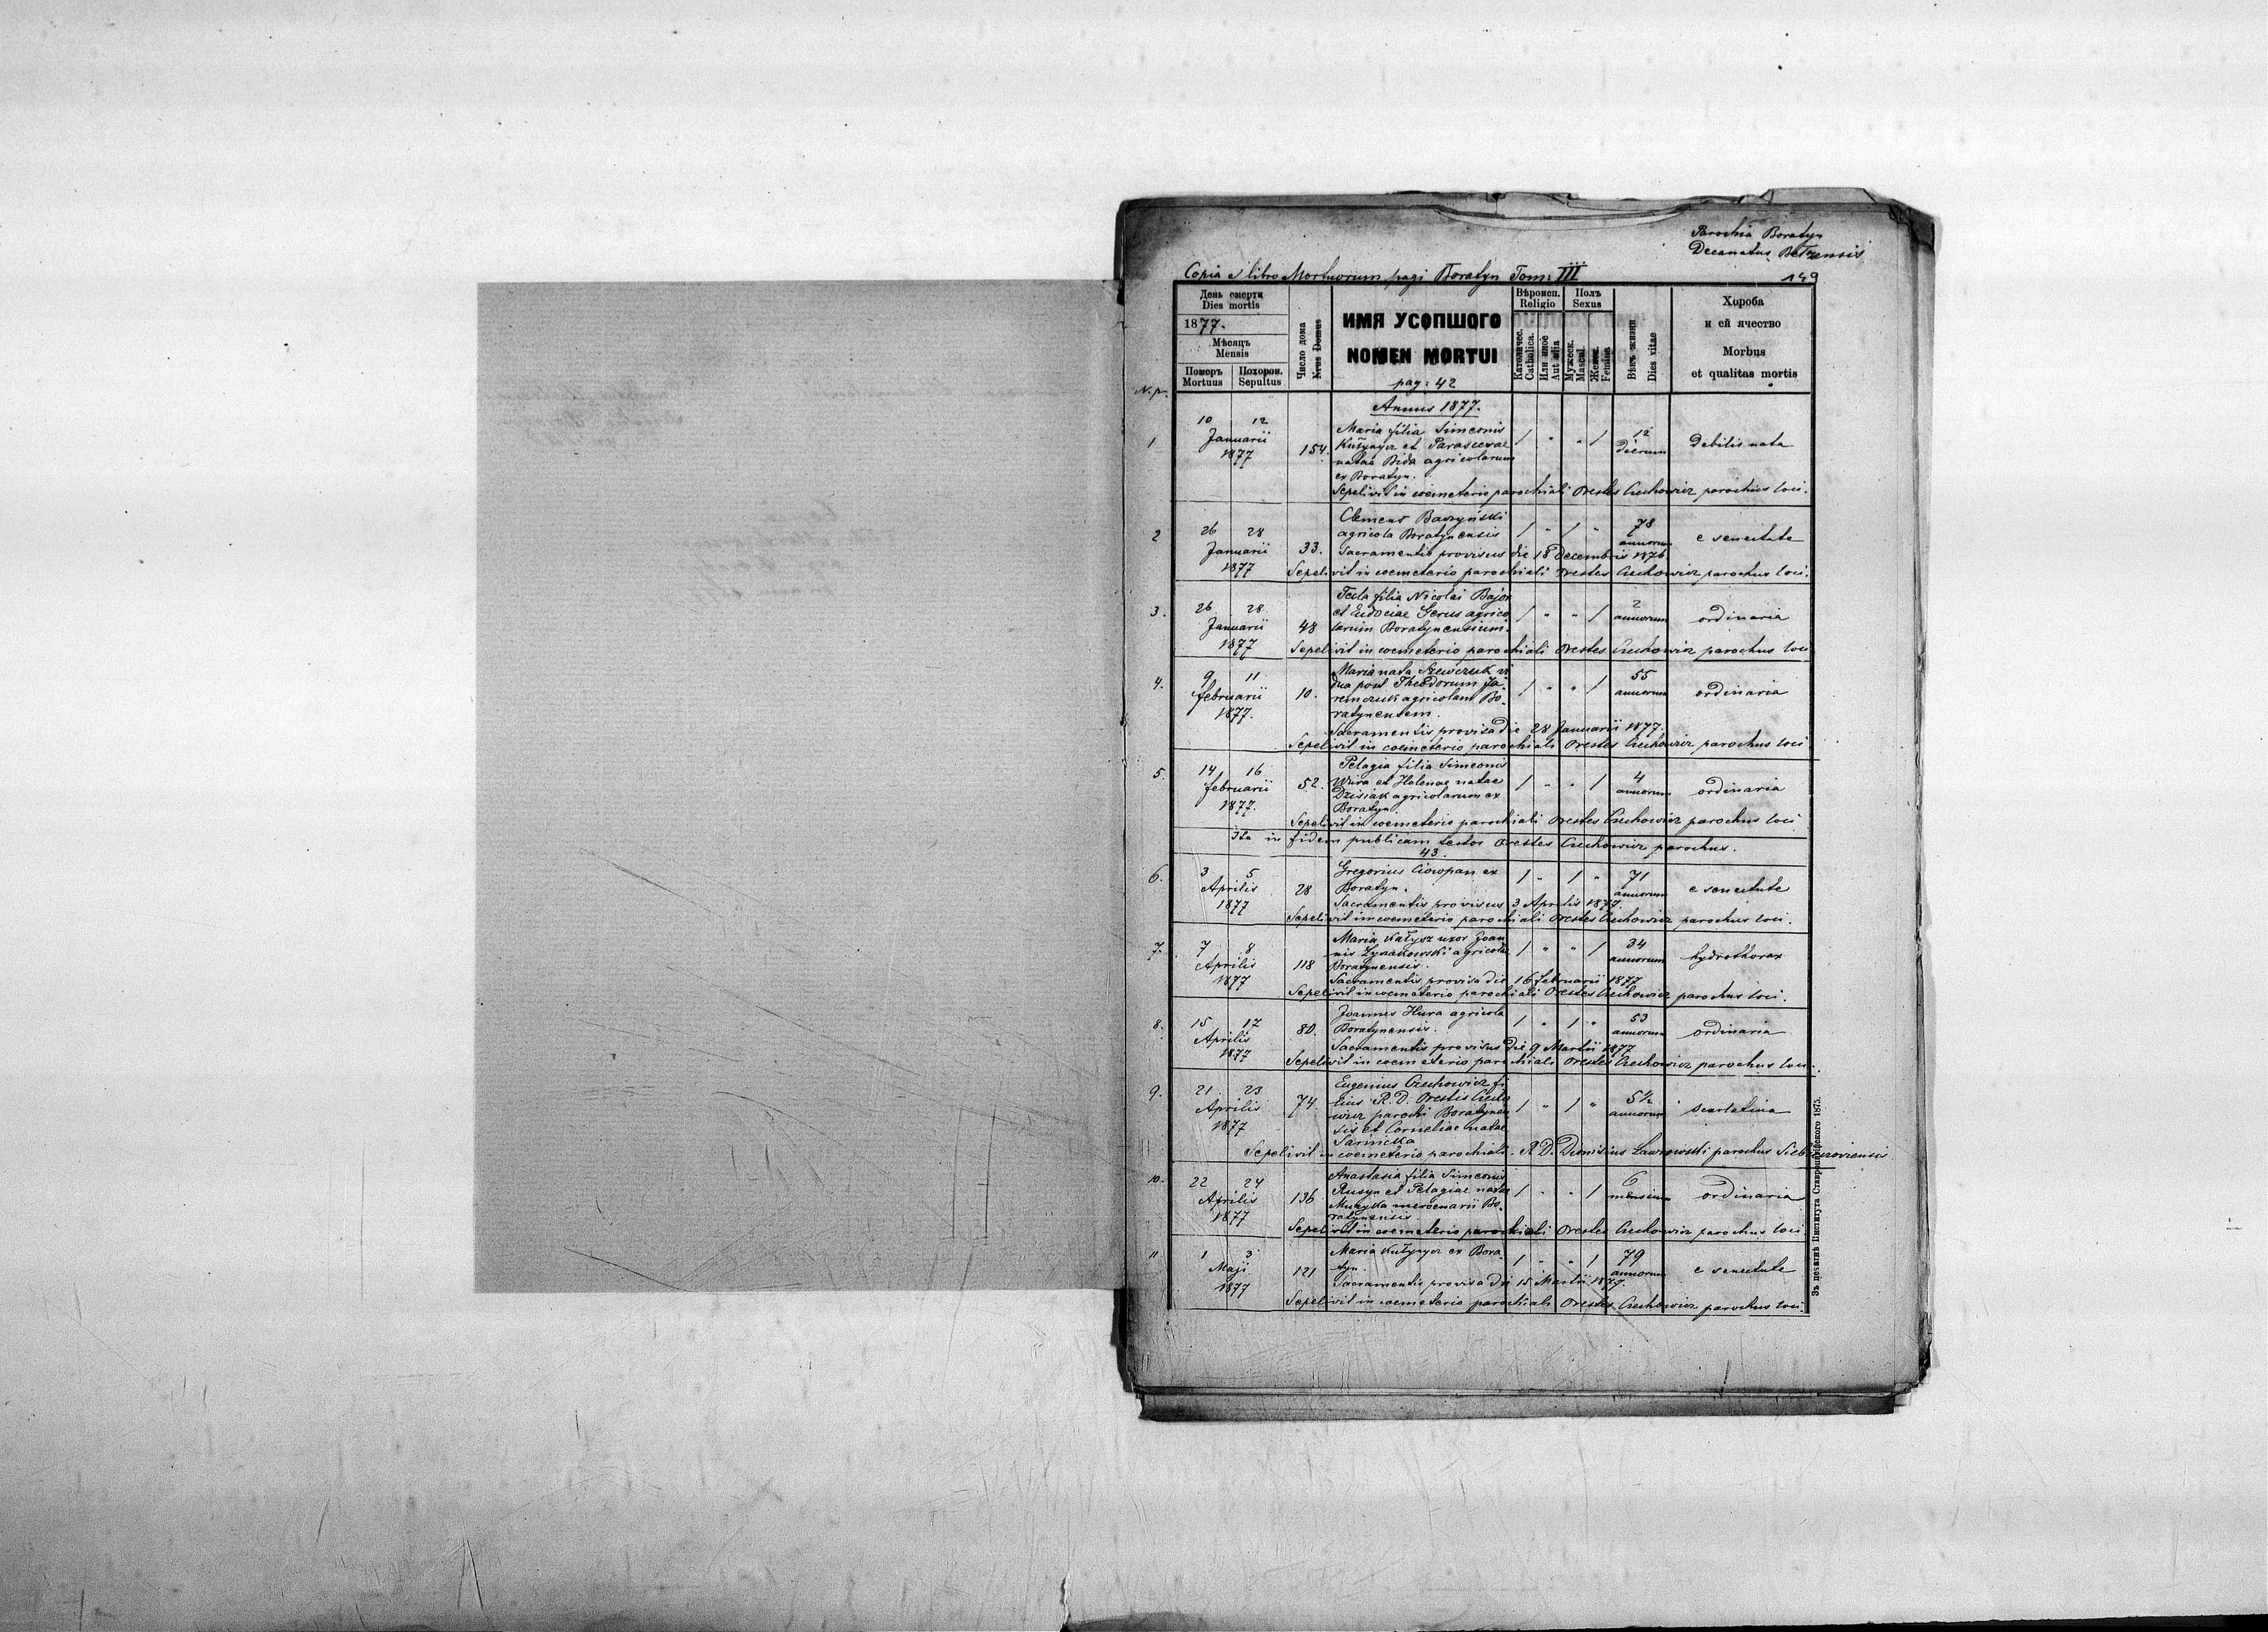 Parochia Boratyn
Decanatus Bełzensis
149
Copia e libro Mortuorum pagi Boratyn Tom: III
День смерти
Dies mortis
1877.
Мѣсяцъ
Mensis
Померъ Похорон.
Mortuus Sepultus
Число дома
Nrus Domus
ИМЯ УСОПШОГО
NOMEN MORTUI
pag: 42
Вѣроисп.
Religio
Католичес.
Catholica.
Или иное
Aut alia
Полъ
Sexus
Мужеск.
Mascul.
Женск.
Femina
Вѣкъ жизни
Dies vitae
Хороба
и ей ячество
Morbus
et qualitas mortis
N. p.
Annus 1877.
1 10 12 Januarii 1877 154. Maria filia Simeonis
Kużynyr et Parascevae
natae Bida agricolarum
ex Boratyn.
1 " " 1 12 dierum Debilis nata
Sepelivit in coemeterio parochiali Orestes Czechowicz parochus loci.
2 26 28 Januarii 1877 33. Clemens Baczyński
agricola Boratynensis
1 " 1 " 78 annorum e senectute
Sacramentis provisus die 18 Decembris 1876
Sepelivit in coemeterio parochiali Orestes Czechowicz parochus loci.
3. 26 28 Januarii 1877 48 Tecla filia Nicolai Bajor
et Eudociae Gerus agrico
larum Boratynensium.
1 " " 1 2 annorum ordinaria
Sepelivit in coemeterio parochiali Orestes Czechowicz parochus loci
4. 9 11 februarii 1877. 10. Maria nata Szewczuk vi
dua post Theodorum Ja-
remczuk agricolam Bo-
ratynensem.
1 " " 1 55 annorum ordinaria
Sacramentis provisa die 28 Januarii 1877.
Sepelivit in coemeterio parochiali Orestes Czechowicz parochus loci
5. 14 16 februarii 1877. 52. Pelagia filia Simeonis
Wura et Helenae natae
Dzisiak agricolarum ex
Boratyn.
1 " " 1 4 annorum ordinaria
Sepelivit in coemeterio parochiali Orestes Czechowicz parochus loci
Ita in fidem publicam testor Orestes Czechowicz parochus.
43.
6. 3 5 Aprilis 1877 28 Gregorius Ciowpan ex
Boratyn.
1 " 1 " 71 annorum e senectute
Sacramentis provisus 3 Aprilis 1877.
Sepelivit in coemeterio parochiali Orestes Czechowicz parochus loci.
7. 7 8 Aprilis 1877 118 Maria Kałysz uxor Joan
nis Żyrakowski agricolae
Boratynensis.
1 " " 1 34 annorum hydrothorax
Sacramentis provisa die 16 februarii 1877
Sepelivit in coemeterio parochiali Orestes Czechowicz parochus loci.
8. 15 17 Aprilis 1877 80. Joannes Hura agricola
Boratynensis.
1 " 1 " 53 annorum ordinaria
Sacramentis provisus die 9 Martii 1877
Sepelivit in coemeterio parochiali Orestes Czechowicz parochus loci.
9. 21 23 Aprilis 1877 74. Eugenius Czechowicz fi
lius R. D. Orestis Czecho
wicz parochi Boratynen
sis et Corneliae natae
Sarnicka
1 " 1 " 5½ annorum scarlatina
Sepelivit in coemeterio parochiali. R. D. Dionisius Ławrowski parochus
10. 22 24 Aprilis 1877 136 Anastasia filia Simeonis
Rusyn et Pelagiae natae
Muzyka mercenarii Bo-
ratynensis.
1 " " 1 6 mensium ordinaria
Sepelivit in coemeterio parochiali Orestes Czechowicz parochus loci
11 1 3 Maji 1877 121 Maria Kużynyr ex Bora-
tyn.
1 " " 1 79 annorum e senectute
Sacramentis provisa die 15 Martii 1877
Sepelivit in coemeterio parochiali Orestes Czechowicz parochus loci.
Зъ печатнѣ Института Ставропигійского 1875.